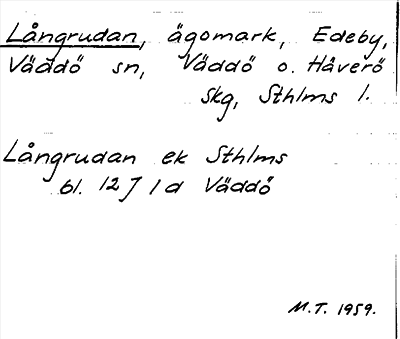 Långrudan, ägomark, Edeby,
Väddö sn, Väddö o. Häverö
skg, Sthlms l.
Långrudan ek Sthlms
bl. 12J 1d Väddö
M.T. 1959.